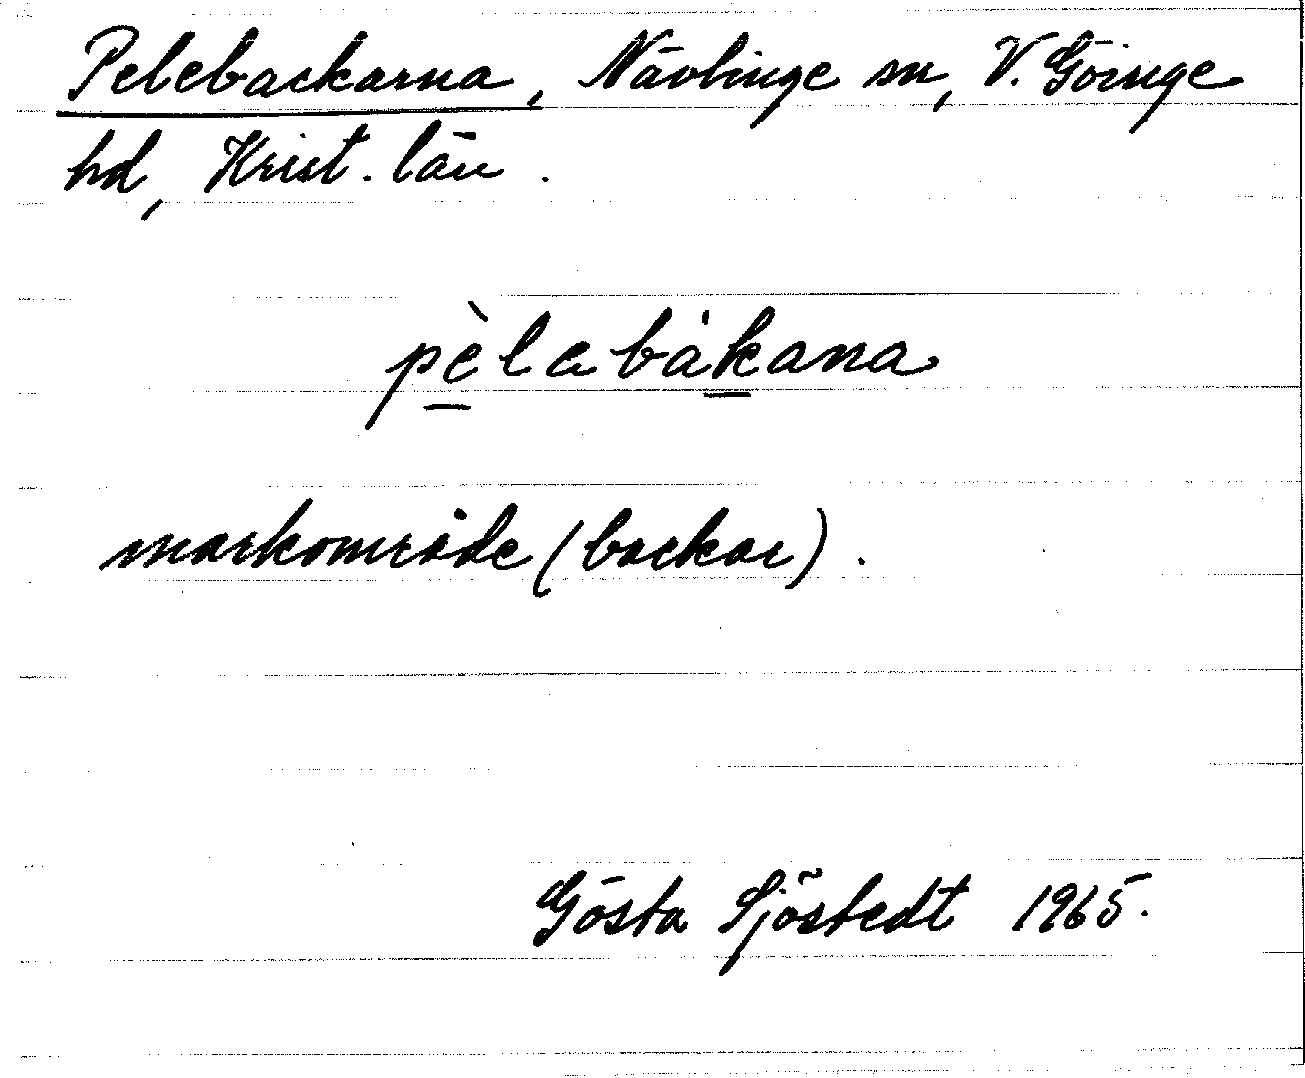 Pelebackarna, Nävlinge sn, V. Göinge
hd, Krist. län.
pèlabákana
markområde (backar).
Gösta Sjöstedt 1965.